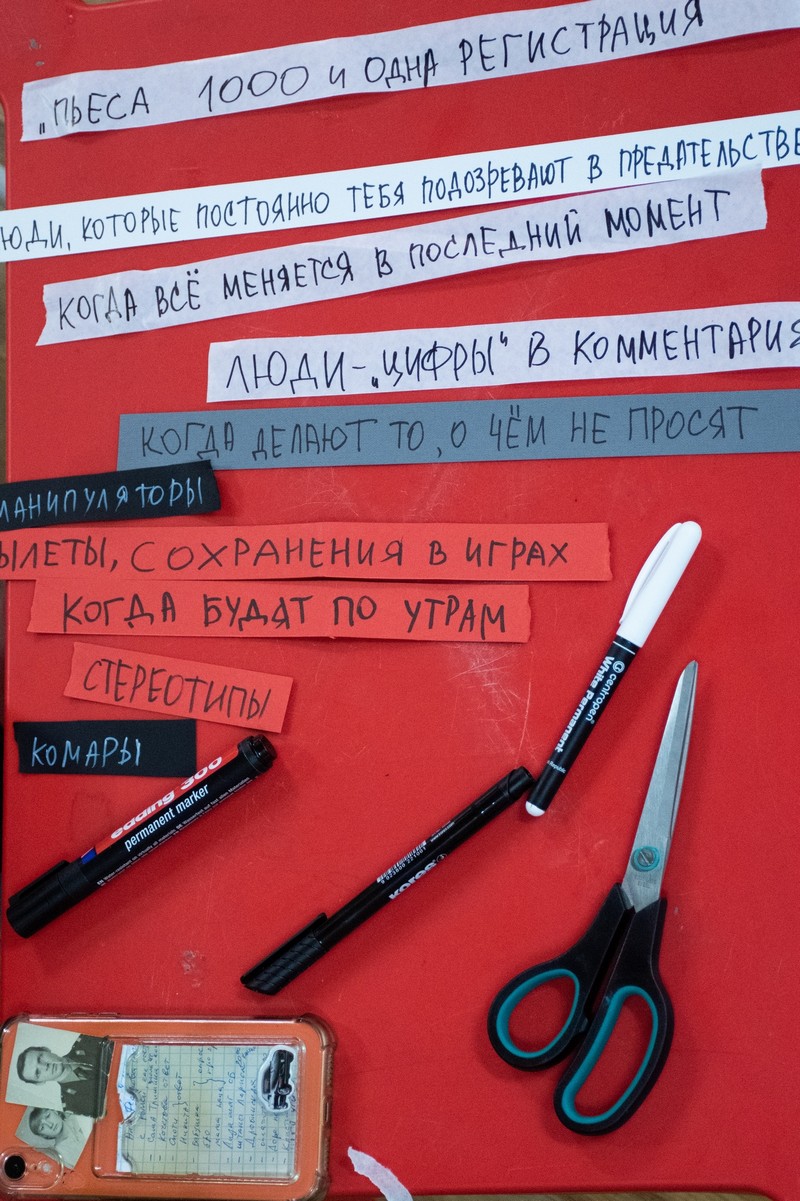 „ПЬЕСА 1000 и ОДНА РЕГИСТРАЦИЯ
ЮДИ, КОТОРЫЕ ПОСТОЯННО ТЕБЯ ПОДОЗРЕВАЮТ В ПРЕДАТЕЛЬСТВЕ
КОГДА ВСЁ МЕНЯЕТСЯ В ПОСЛЕДНИЙ МОМЕНТ
ЛЮДИ-„ЦИФРЫ“ В КОММЕНТАРИЯ
КОГДА ДЕЛАЮТ ТО, О ЧЁМ НЕ ПРОСЯТ
МАНИПУЛЯТОРЫ
ЫЛЕТЫ, СОХРАНЕНИЯ В ИГРАХ
КОГДА БУДЯТ ПО УТРАМ
СТЕРЕОТИПЫ
КОМАРЫ
centropen
White Permanent
edding 300
permanent marker
kores